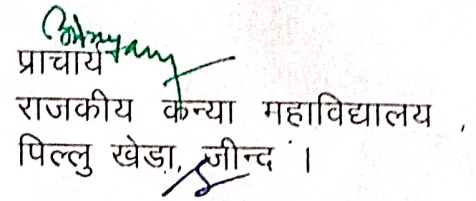 प्राचार्य
राजकीय कन्या महाविद्यालय,
पिल्लु खेडा, जीन्द ।